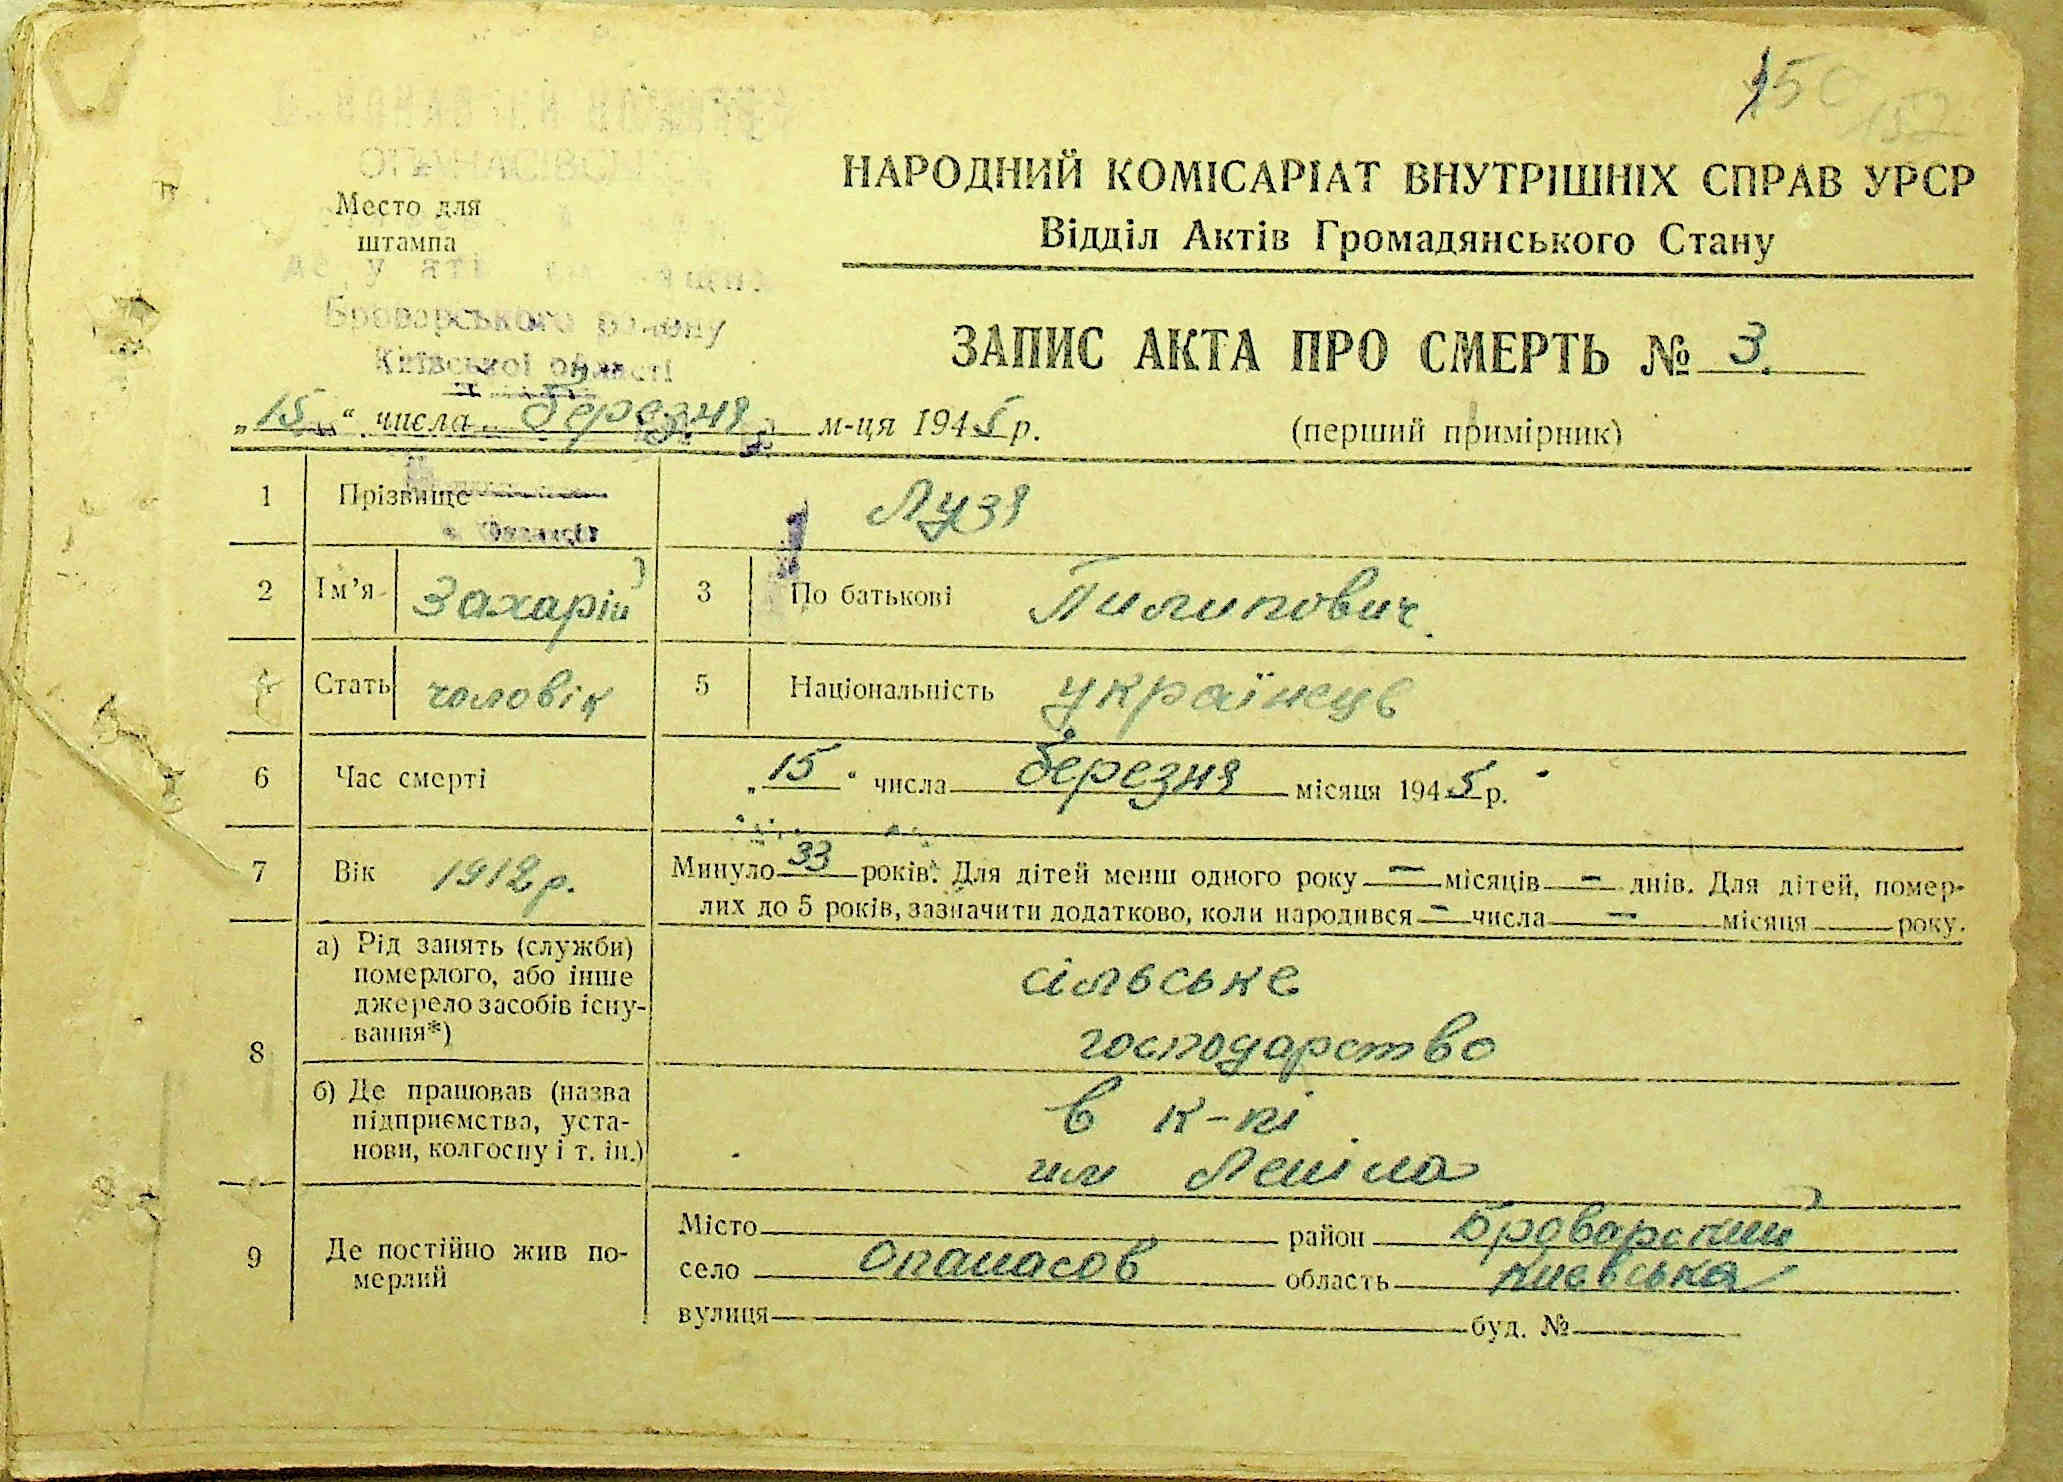 150
152
НАРОДНИЙ КОМІСАРІАТ ВНУТРІШНІХ СПРАВ УРСР
Відділ Актів Громадянського Стану
Место для
штампа
Броварського району
Київської області
ЗАПИС АКТА ПРО СМЕРТЬ № 3.
„15“ числа березня м-ця 1945 р.
(перший примірник)
1 Прізвище Лузя
2 Ім'я Захарій 3 По батькові Пилипович.
4 Стать чоловік 5 Національність українець
6 Час смерті „15“ числа березня місяця 1945 р.
7 Вік 1912 р. Минуло 33 років. Для дітей менш одного року — місяців — днів. Для дітей, помер-
лих до 5 років, зазначити додатково, коли народився — числа — місяця року.
8 а) Рід занять (служби)
померлого, або інше
джерело засобів існу-
вання*)
сільське
господарство
б) Де працював (назва
підприємства, уста-
нови, колгоспу і т. ін.)
в к-пі
им Леніна
9 Де постійно жив по-
мерлий
Місто район Броварский
село Опанасов область Киевська
вулиця буд. №